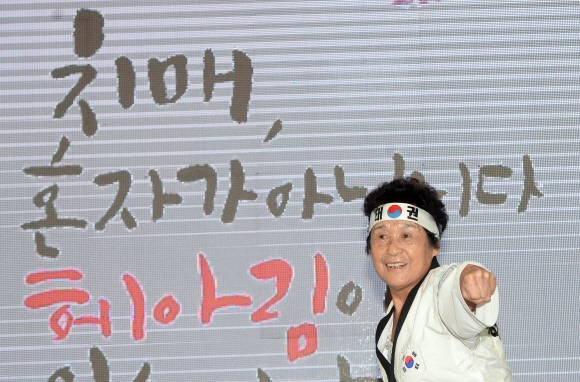 치매,
혼자가 아닙니다
헤아림이
태권